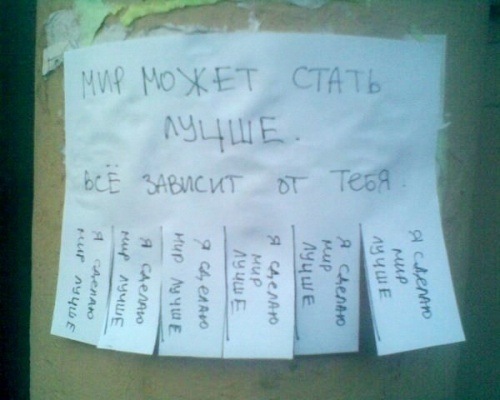 МИР МОЖЕТ СТАТЬ
ЛУЧШЕ.
ВСЁ ЗАВИСИТ ОТ ТЕБЯ.
Я СДЕЛАЮ
МИР ЛУЧШЕ
Я СДЕЛАЮ
МИР ЛУЧШЕ
Я СДЕЛАЮ
МИР ЛУЧШЕ
Я СДЕЛАЮ
МИР
ЛУЧШЕ
Я СДЕЛАЮ
МИР
ЛУЧШЕ
Я СДЕЛАЮ
МИР
ЛУЧШЕ